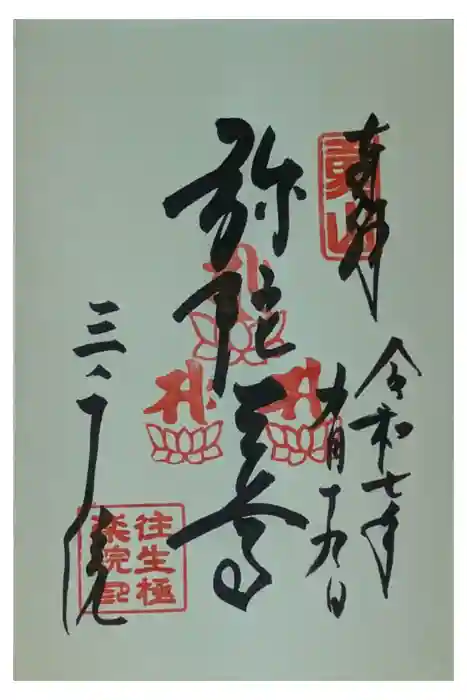 奉拝
令和七年
九月十九日
弥陀三尊
三千院
往生極
楽院印